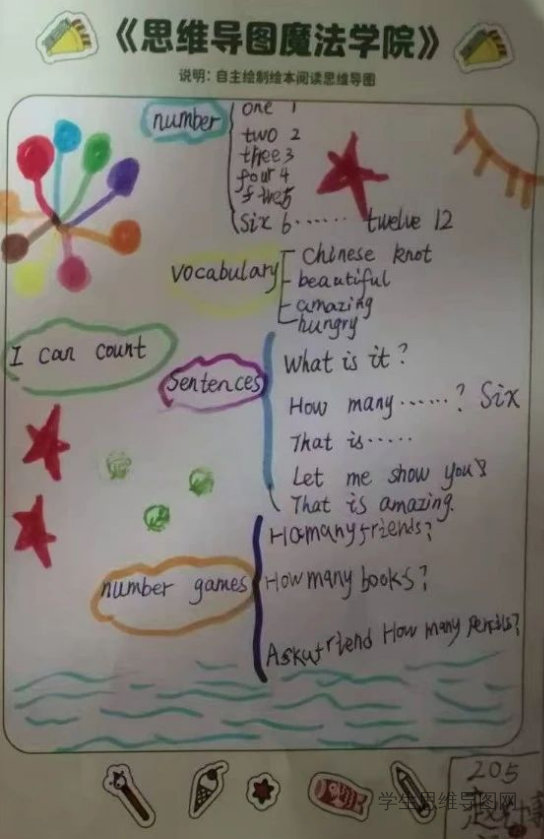 《思维导图魔法学院》
说明：自主绘制绘本阅读思维导图
number
one 1
two 2
three 3
four 4
five 5
Six 6...... twelve 12
vocabulary
Chinese knot
beautiful
amazing
hungry
I can count
Sentences
What is it?
How many ......? Six
That is.....
Let me show you!
That is amazing.
number games
Homany friends?
How many books?
Ask a friend How many pencils?
205
学生思维导图网